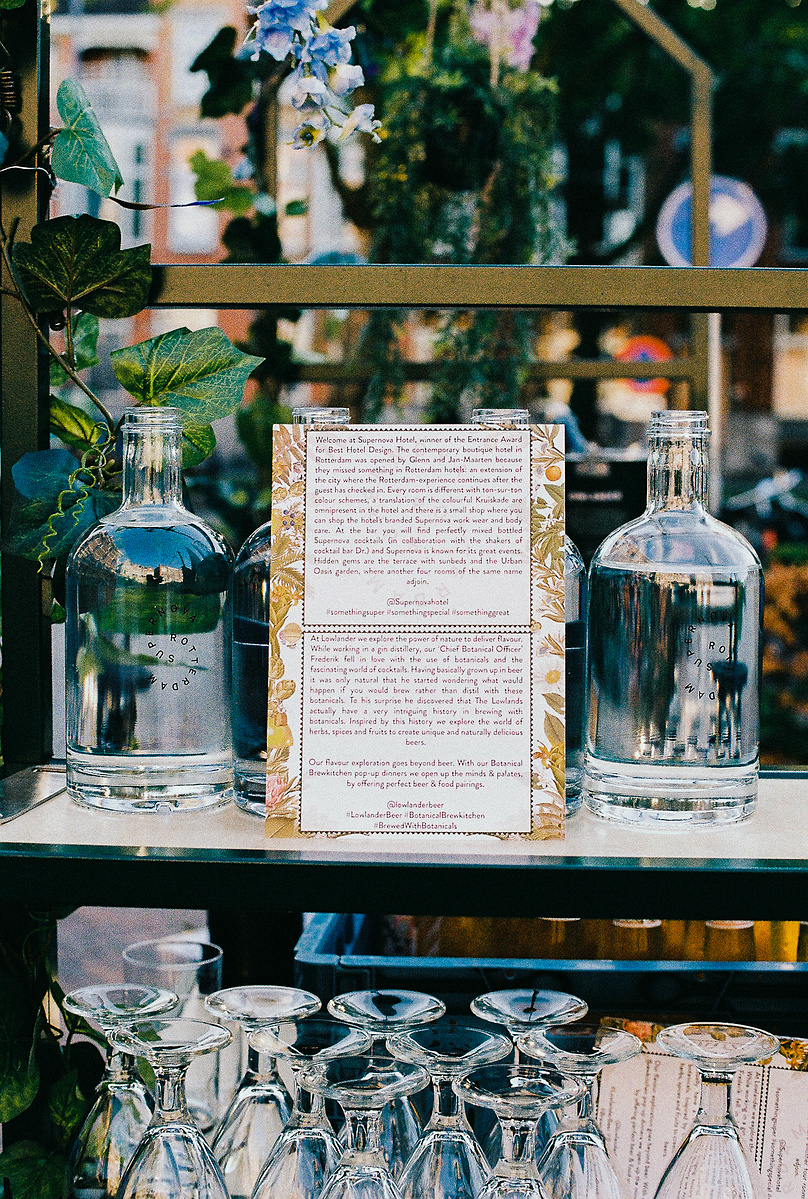 Welcome at Supernova Hotel, winner of the Entrance Award
for Best Hotel Design. The contemporary boutique hotel in
Rotterdam was opened by Glenn and Jan-Maarten because
they missed something in Rotterdam hotels: an extension of
the city where the Rotterdam-experience continues after the
guest has checked in. Every room is different with ton-sur-ton
colour schemes, a translation of the colourful Kruiskade are
omnipresent in the hotel and there is a small shop where you
can shop the hotels branded Supernova work wear and body
care. At the bar you will find perfectly mixed bottled
Supernova cocktails (in collaboration with the shakers of
cocktail bar Dr.) and Supernova is known for its great events.
Hidden gems are the terrace with sunbeds and the Urban
Oasis garden, where another four rooms of the same name
adjoin.
@Supernovahotel
#somethingsuper #somethingspecial #somethinggreat
At Lowlander we explore the power of nature to deliver flavour.
While working in a gin distillery, our 'Chief Botanical Officer'
Frederik fell in love with the use of botanicals and the
fascinating world of cocktails. Having basically grown up in beer
it was only natural that he started wondering what would
happen if you would brew rather than distil with these
botanicals. To his surprise he discovered that The Lowlands
actually have a very intriguing history in brewing with
botanicals. Inspired by this history we explore the world of
herbs, spices and fruits to create unique and naturally delicious
beers.
Our flavour exploration goes beyond beer. With our Botanical
Brewkitchen pop-up dinners we open up the minds & palates,
by offering perfect beer & food pairings.
@lowlanderbeer
#LowlanderBeer #BotanicalBrewkitchen
#BrewedWithBotanicals
SUPERNOVA ROTTERDAM
SUPERNOVA ROTTERDAM